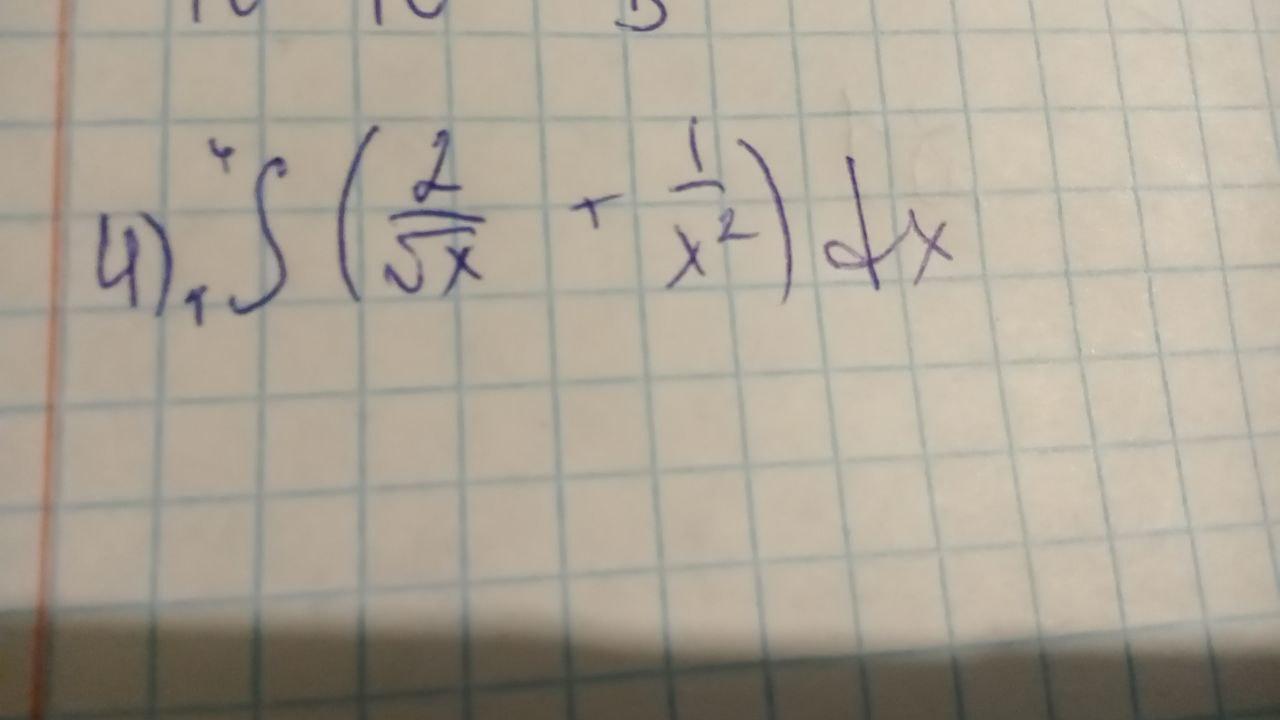 4). ₁∫⁴ (2/√x + 1/x²) dx